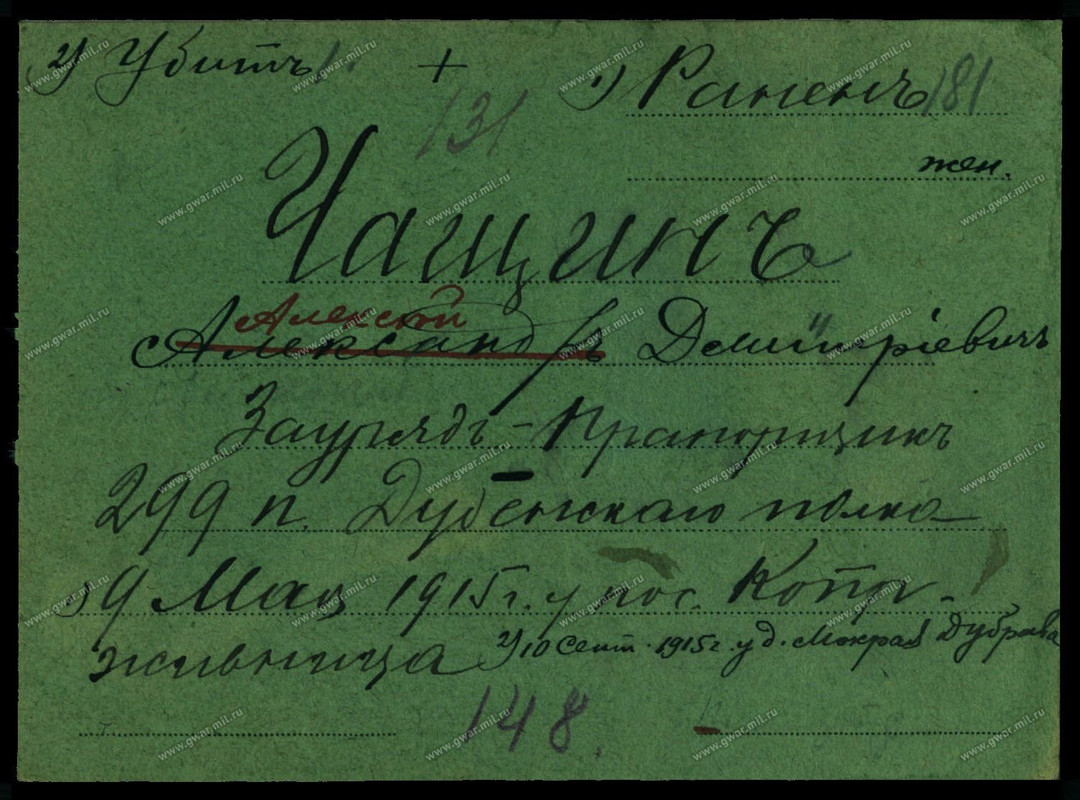 2) Убитъ + 1) Раненъ 181
131
жен.
Чащинъ
Алексѣй
Александръ Дмитріевичъ
Заурядъ-Прапорщикъ
299 п. Дубенскаго полка
1) 9 Мая 1915 г. у пос. Копр-
жывница 2) 10 Сент. 1915 г. у д. Мокрая Дуброва
148.
www.gwar.mil.ru